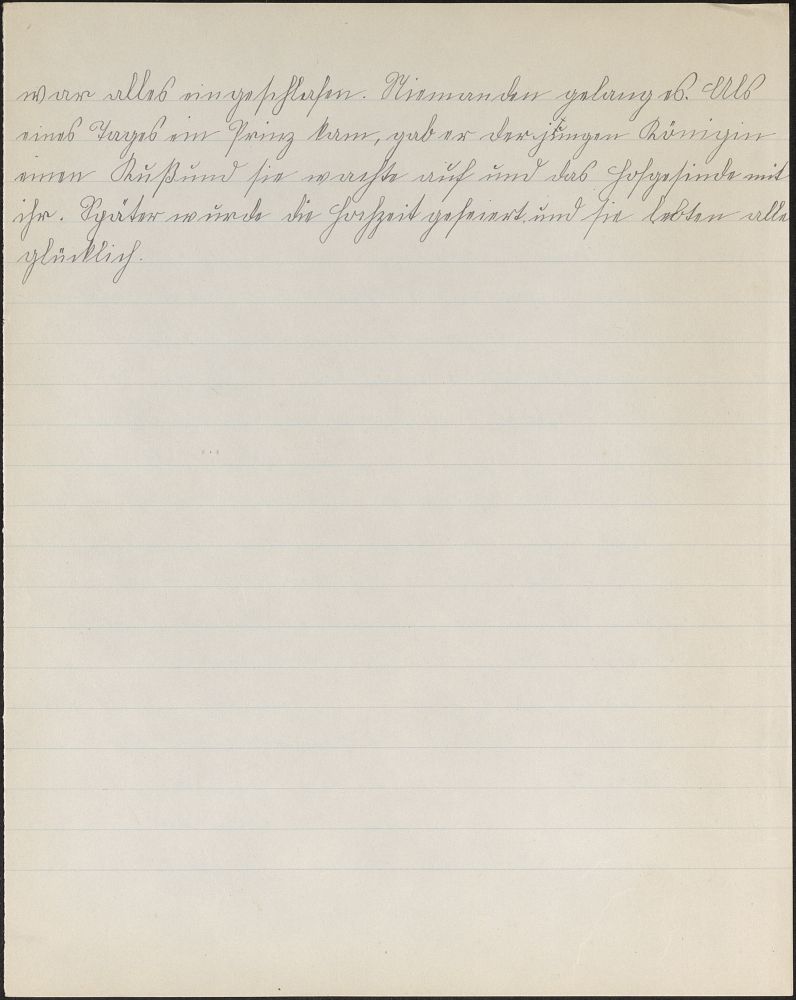 war alles eingeschlafen. Niemanden gelang es. Als
eines Tages ein Prinz kam, gab er der jungen Königin
einen Kuß und sie wachte auf und das Hofgesinde mit
ihr. Später wurde die Hochzeit gefeiert und sie lebten alle
glücklich.